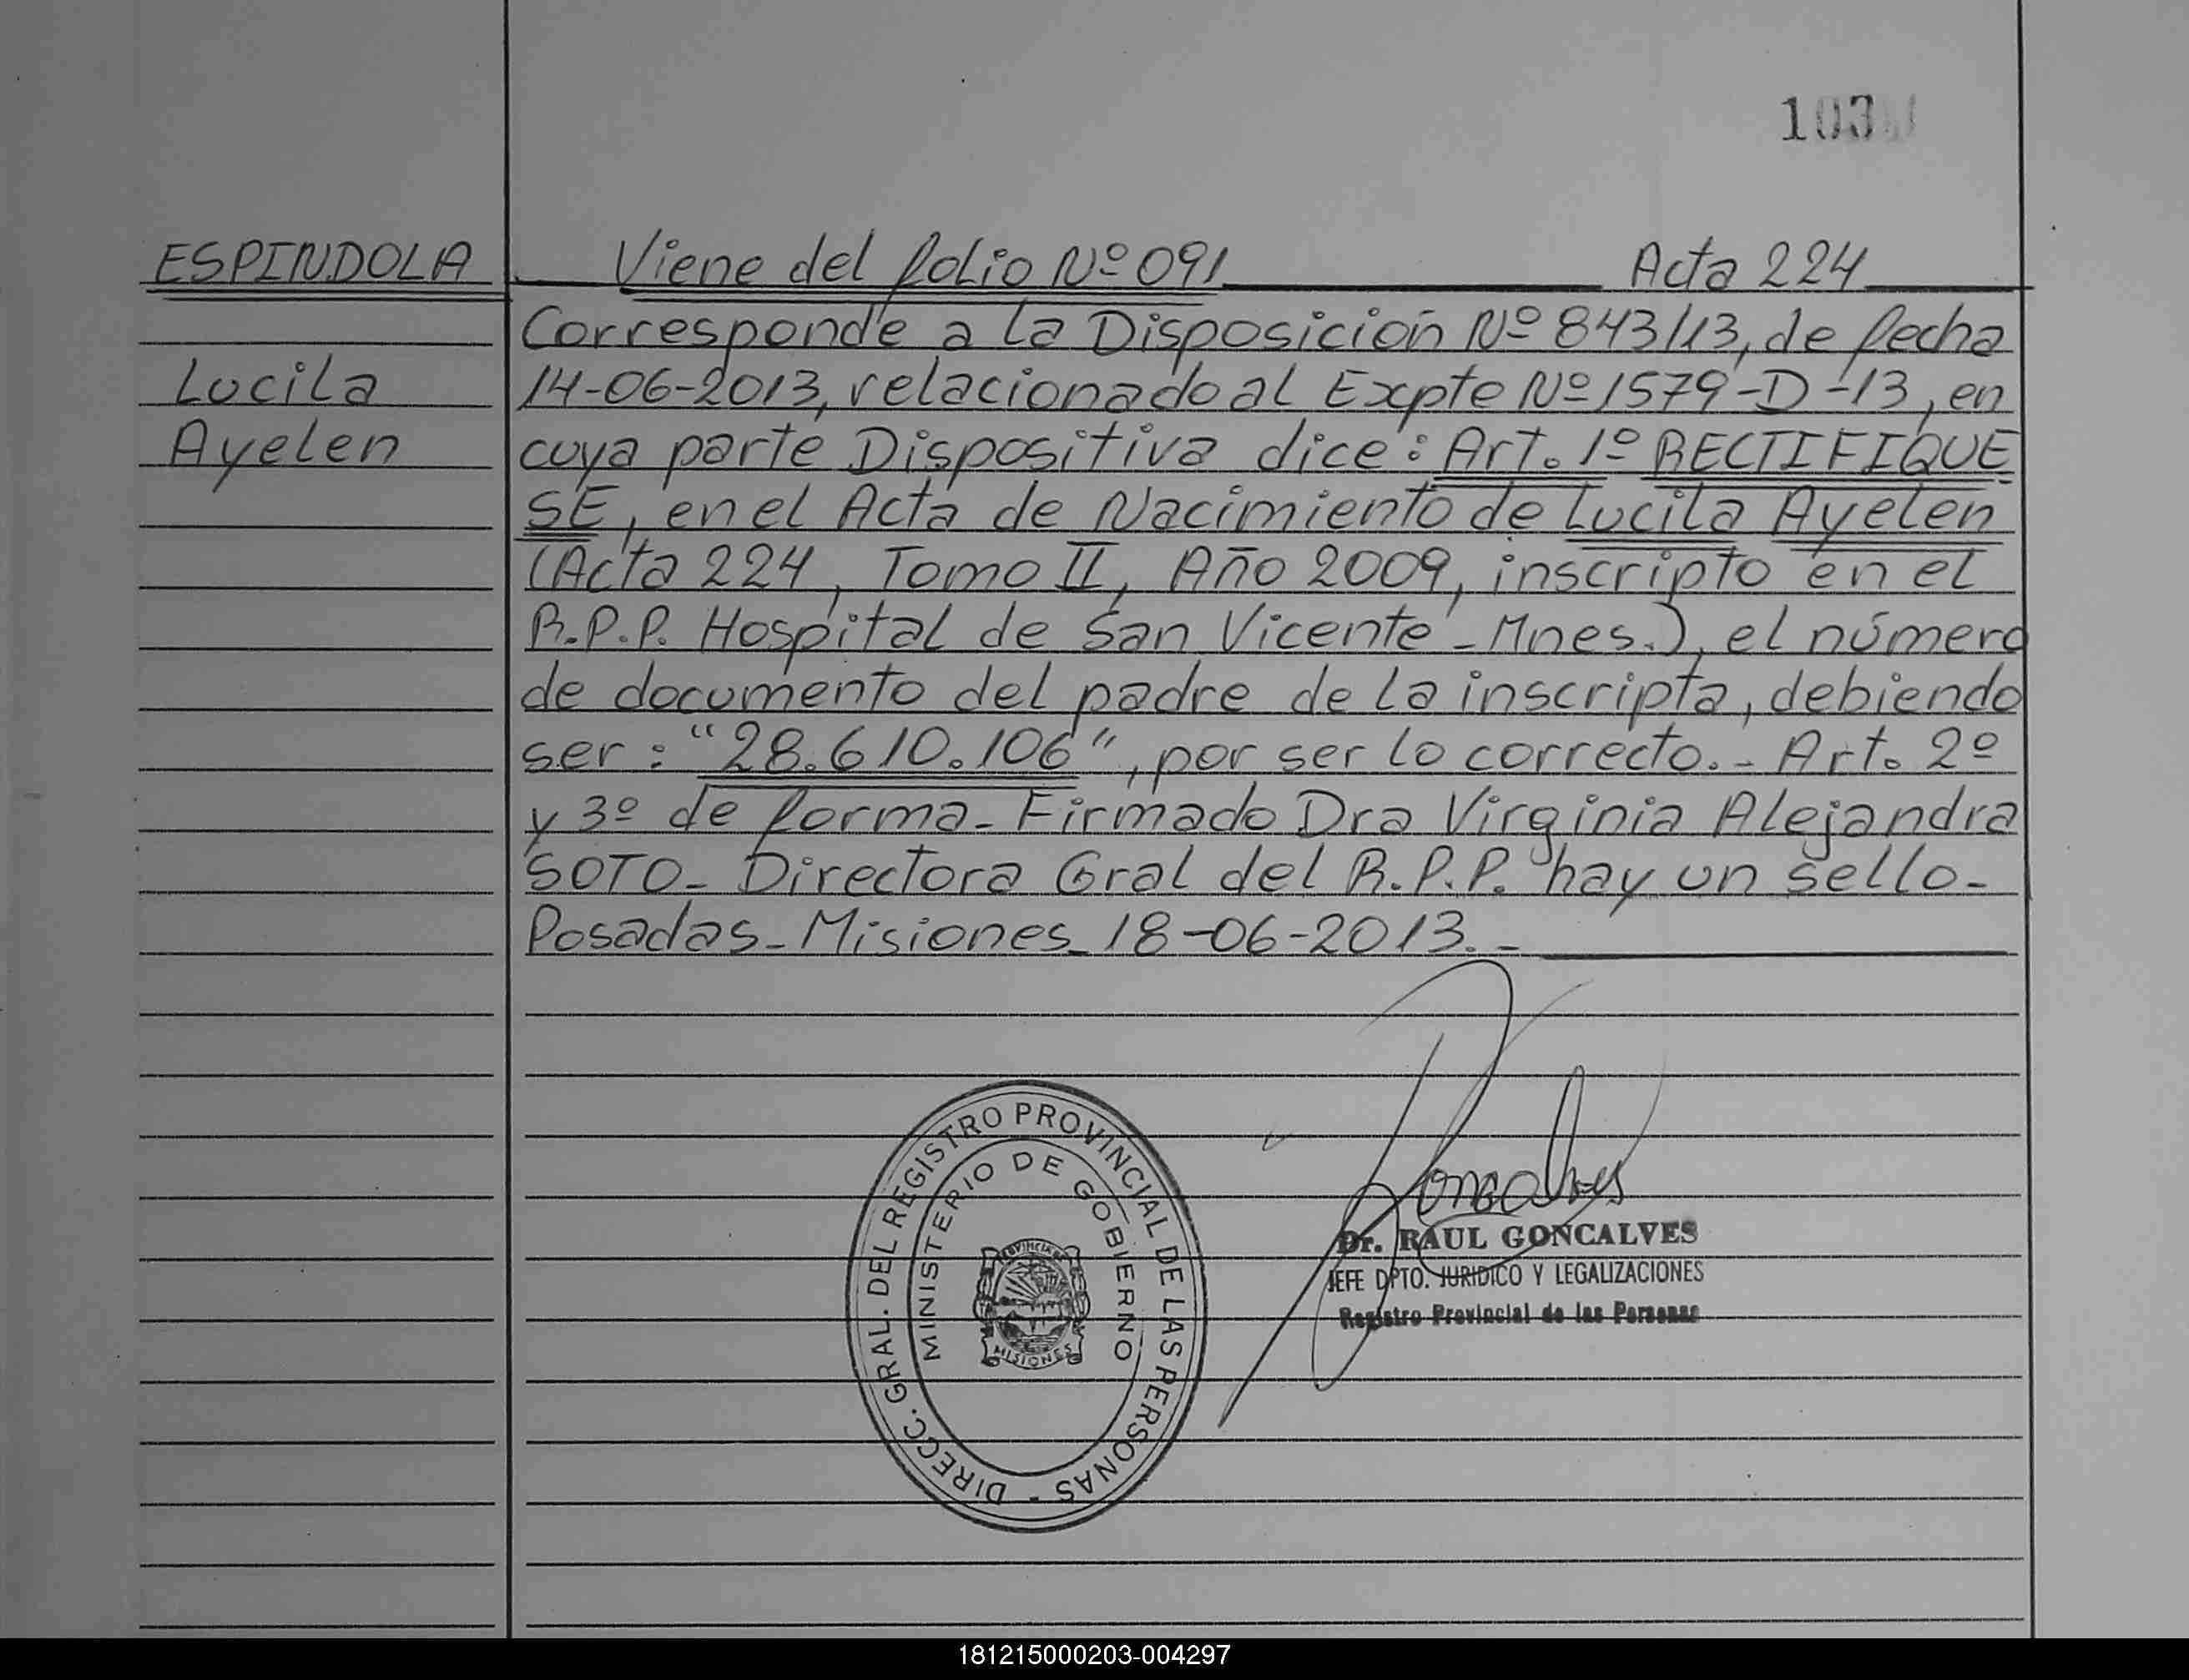 103
ESPINDOLA
Lucila
Ayelen
Viene del folio Nº 091 Acta 224
Corresponde a la Disposición Nº 843/13, de fecha
14-06-2013, relacionado al Expte Nº 1579-D-13, en
cuya parte Dispositiva dice: Art. 1º RECTIFIQUE
SE, en el Acta de Nacimiento de Lucila Ayelen
(Acta 224, Tomo II, Año 2009, inscripto en el
R.P.P. Hospital de San Vicente - Mnes.), el número
de documento del padre de la inscripta, debiendo
ser: "28.610.106", por ser lo correcto.- Art. 2º
y 3º de forma- Firmado Dra Virginia Alejandra
SOTO- Directora Gral del R.P.P. hay un sello-
Posadas- Misiones 18-06-2013.-
DIRECC. GRAL. DEL REGISTRO PROVINCIAL DE LAS PERSONAS -
MINISTERIO DE GOBIERNO
PROVINCIA DE
MISIONES
Goncalves
Dr. RAUL GONCALVES
JEFE DPTO. JURIDICO Y LEGALIZACIONES
Registro Provincial de las Personas
181215000203-004297